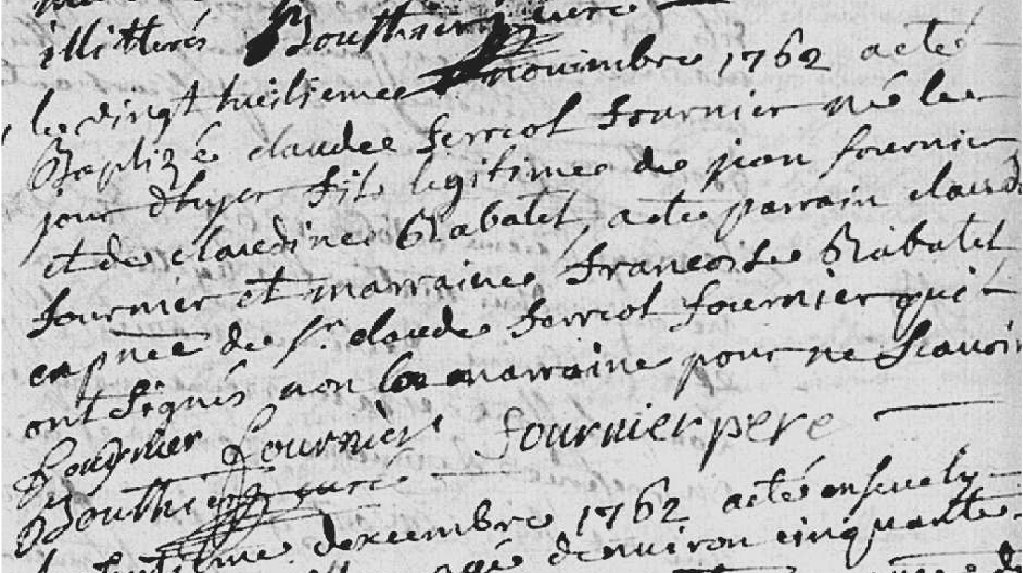 illitterés Bouthier curé
le vingt huitieme novembre 1762 a eté
Baptizé claude ferriol fournier né le
jour d'hyer fils legitime de jean fournier
et de claudine Rabalet, a ete parrain claude
fournier et marraine francoise Rabalet
en pnce de sr. claude ferriol fournier qui
ont signés non la marraine pour ne scavoir
fournier fournier fournier pere
Bouthier curé
decembre 1762 a eté ensevely
agé denviron cinquante